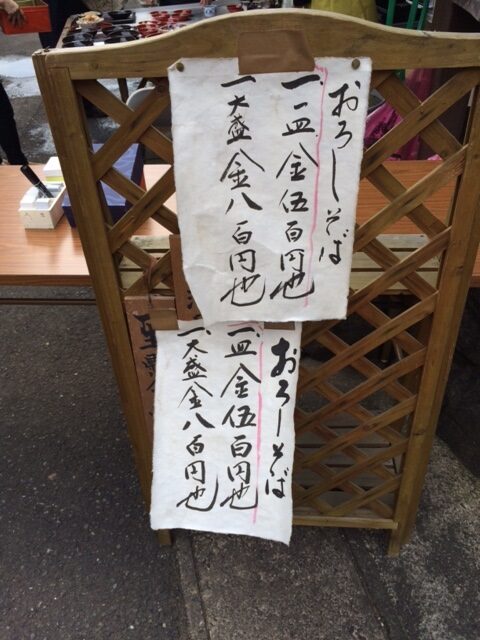 おろしそば
一、一皿金伍百円也
一、大盛金八百円也
おろしそば
一、皿金伍百円也
一、大盛金八百円也